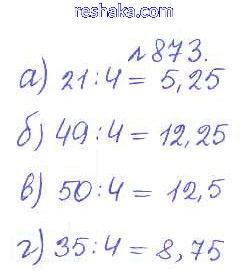 reshaka.com
№873.
а) 21:4 = 5,25
б) 49:4 = 12,25
в) 50:4 = 12,5
г) 35:4 = 8,75